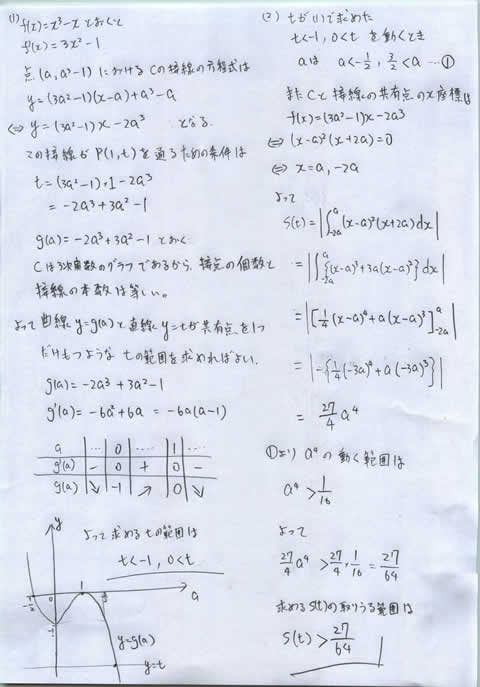 (1) f(x)=x³-x とおくと
f'(x)=3x²-1
点(a, a³-a)におけるCの接線の方程式は
y=(3a²-1)(x-a)+a³-a
⇔ y=(3a²-1)x-2a³ となる
この接線がP(1,t)を通るための条件は
t=(3a²-1)・1-2a³
=-2a³+3a²-1
g(a)=-2a³+3a²-1とおく
Cは3次関数のグラフであるから、接点の個数と
接線の本数は等しい。
よって曲線y=g(a)と直線y=tが共有点を1つ
だけもつような tの範囲を求めればよい.
g(a)=-2a³+3a²-1
g'(a)=-6a²+6a=-6a(a-1)
a … 0 … 1 …
g'(a) - 0 + 0 -
g(a) ↘ -1 ↗ 0 ↘
よって求めるtの範囲は
t<-1, 0<t
y
-1/2 0 1 3/2 a
-1
y=g(a)
y=t
(2) tが(1)で求めた
t<-1, 0<t を動くとき
aは a<-1/2, 3/2<a …①
またCと接線の共有点のx座標は
f(x)=(3a²-1)x-2a³
⇔ (x-a)²(x+2a)=0
⇔ x=a, -2a
よって
S(t)=|∫_{-2a}^{a}(x-a)²(x+2a)dx|
=|∫_{-2a}^{a}{(x-a)³+3a(x-a)²}dx|
=|[1/4(x-a)⁴+a(x-a)³]_{-2a}^{a}|
=|-{1/4(-3a)⁴+a(-3a)³}|
=27/4 a⁴
①より a⁴の動く範囲は
a⁴>1/16
よって
27/4 a⁴>27/4・1/16=27/64
求めるS(t)の取りうる範囲は
S(t)>27/64